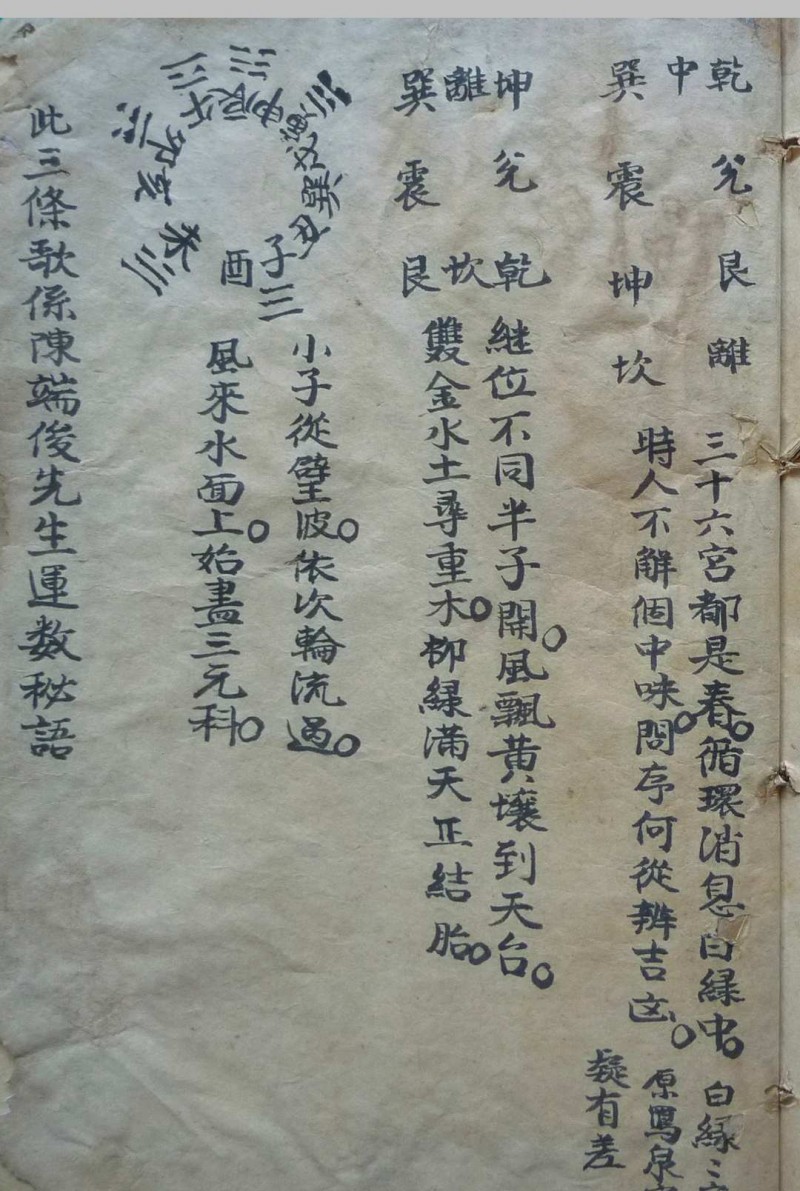 乾 兊 艮 離 三十六宮都是春。循環消息白緑中。白縁
中
巽 震 坤 坎 時人不解個中味。問序何從辨吉凶。原
疑有差
坤 兊 乾 継位不同半子開。風飄黃壤到天台。
離 坎
巽 震 艮 雙金水土尋重木。柳緑滿天正結胎。
子
酉
丑 巽 申 辰 午 卯 亥
小子從壁波。依次輪流過。
風來水面上。始盡三元科。
此三條歌係陳端俊先生運数秘語